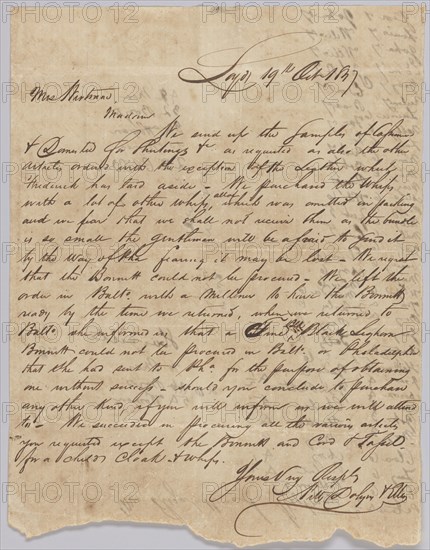 Loyds 19th Oct 1847
Mrs Hartman
Madam
We send up the Samples of Cassime
& Domestics for Huntings &c as requested as also the other
articles ordered with the exception of the Leghorn which
Frederick has laid aside - We purchased the Whips
with a lot of other Whips, all of which was omitted in packing
and we fear that we shall not receive them as the bundle
is so small the gentleman will be afraid to send it
by the Way of Pha fearing it may be lost - We regret
that the Bonnett could not be procured - We left the
order in Balto. with a Millener to have the Bonnett
ready by the time we returned, when we returned to
Balto she informed us that a fine Black Leghorn
Bonnett could not be procured in Balt. or Philadelphia
that she had sent to Pha. for the purpose of obtaining
one without success - should you conclude to purchase
any other Kind, if you will inform us we will attend
to - We succeeded in procuring all the various articles
you requested except the Bonnett and Cord & Tassel
for a childs Cloak & Whips.
Yours Very Resply